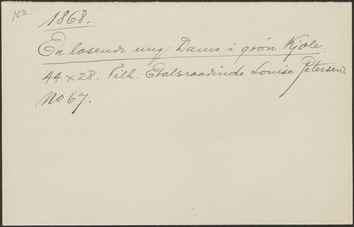 162
1868.
En læsende ung Dame i grøn Kjole
44 x 28. Tilh. Etatsraadinde Louise Petersen
No 67.